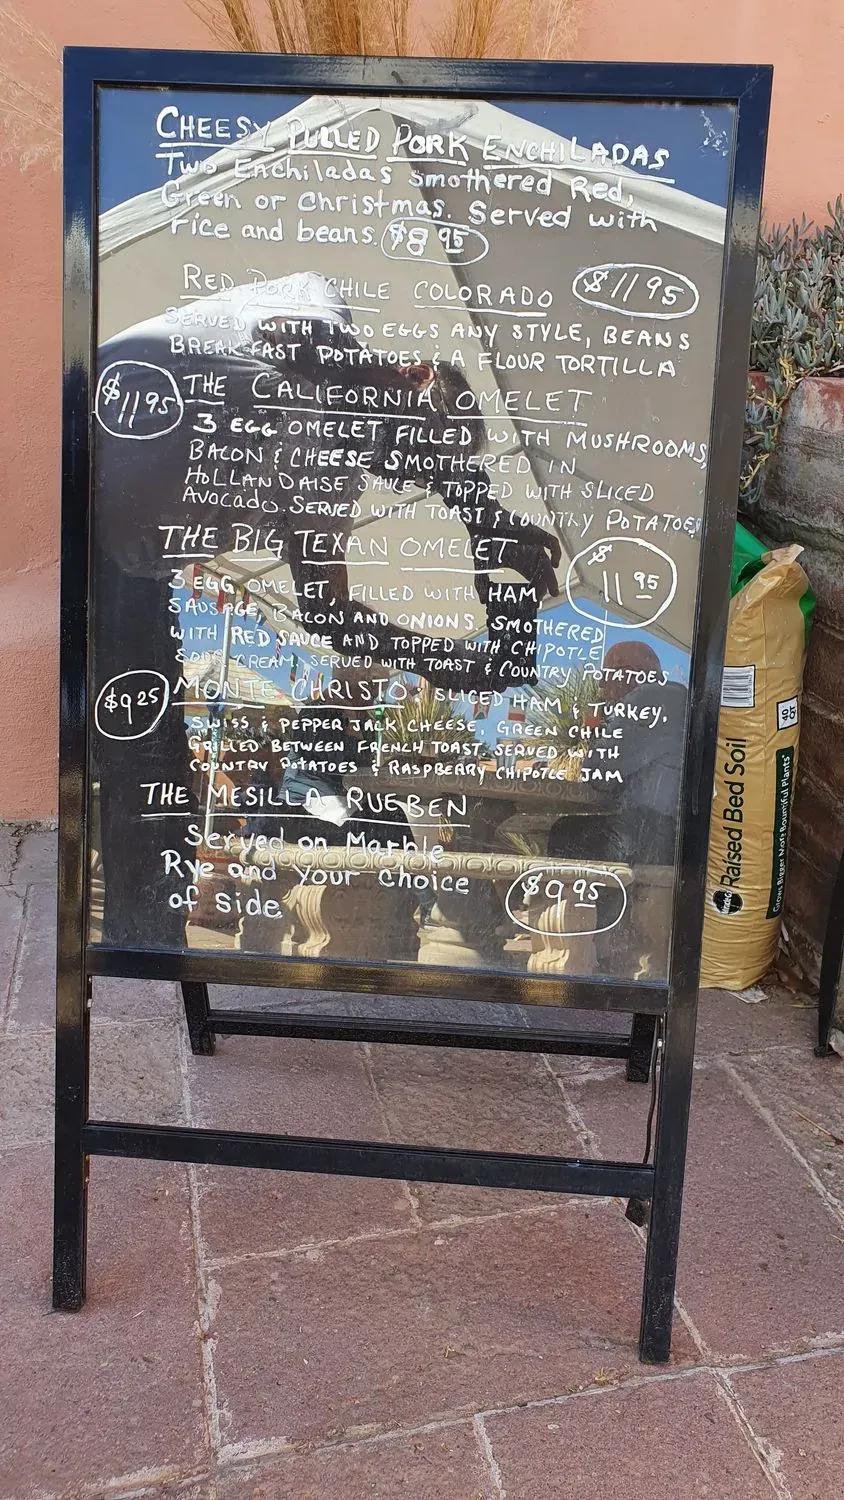 CHEESY PULLED PORK ENCHILADAS
Two Enchiladas smothered Red,
Green or Christmas. Served with
rice and beans. $8 95
RED PORK CHILE COLORADO $11 95
SERVED WITH TWO EGGS ANY STYLE, BEANS
BREAKFAST POTATOES & A FLOUR TORTILLA
$11 95 THE CALIFORNIA OMELET
3 EGG OMELET FILLED WITH MUSHROOMS,
BACON & CHEESE SMOTHERED IN
HOLLANDAISE SAUCE & TOPPED WITH SLICED
Avocado. SERVED WITH TOAST & COUNTRY POTATOES
THE BIG TEXAN OMELET $11 95
3 EGG OMELET, FILLED WITH HAM,
SAUSAGE, BACON AND ONIONS. SMOTHERED
WITH RED SAUCE AND TOPPED WITH CHIPOTLE
SOUR CREAM, SERVED WITH TOAST & COUNTRY POTATOES
$9 25 MONTE CHRISTO SLICED HAM & TURKEY,
SWISS & PEPPER JACK CHEESE, GREEN CHILE
GRILLED BETWEEN FRENCH TOAST. SERVED WITH
COUNTRY POTATOES & RASPBERRY CHIPOTLE JAM
THE MESILLA RUEBEN
Served on Marble
Rye and your choice
of side $9 95
40 QT
Raised Bed Soil
Grows Bigger More Bountiful Plants*